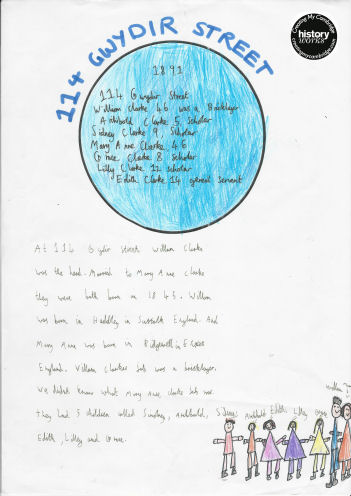 Creating My Cambridge
history
WORKS
creatingmycambridge.com
114 GWYDIR STREET
1891
114 Gwydir Street
William Clarke 46 was a Bricklayer
Archibald Clarke 5 Scholar
Sidney Clarke 9, Scholar
Mary Anne Clarke 46
Grace Clarke 8 scholar
Lilly Clarke 12 scholar
Edith Clarke 14 general servant
At 114 Gwydir street William Clarke
was the head. Married to Mary Anne Clarke
they were both born in 1845. William
was born in in Suffolk England. And
Mary Anne was born in Ridgewell in Essex
England. William Clarkes Job was a bricklayer.
We didn't know what Mary Anne Clarke Job was.
they had 5 children called Sindey, Archibald,
Edith, Lilley and Grace.
Sidney Archibald Edith Lilley Grace William